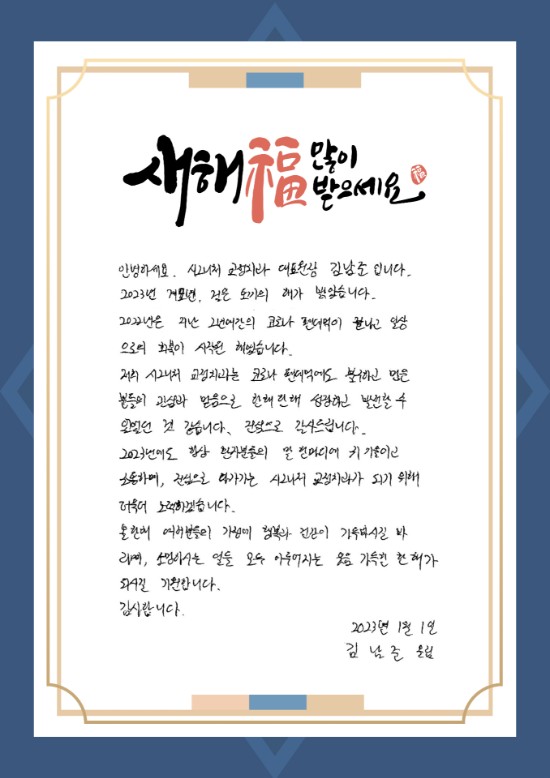 새해福 많이
받으세요 福
안녕하세요. 시그니처 교정치과 대표원장 김남준 입니다.
2023년 계묘년, 검은 토끼의 해가 밝았습니다.
2022년은 지난 2년여간의 코로나 팬데믹이 끝나고 일상
으로의 회복이 시작된 해였습니다.
저희 시그니처 교정치과는 코로나 팬데믹에도 불구하고 많은
분들의 관심과 믿음으로 한해 한해 성장하고 발전할 수
있었던 것 같습니다. 진심으로 감사드립니다.
2023년에도 항상 환자분들의 말 한마디에 귀 기울이고
소통하며, 진심으로 다가가는 시그니처 교정치과가 되기 위해
더욱더 노력하겠습니다.
올 한해 여러분들의 가정에 행복과 건강이 가득하시길 바
라며, 소망하시는 일들 모두 이루어지는 웃음 가득한 한 해가
되시길 기원합니다.
감사합니다.
2023년 1월 1일
김 남 준 올림